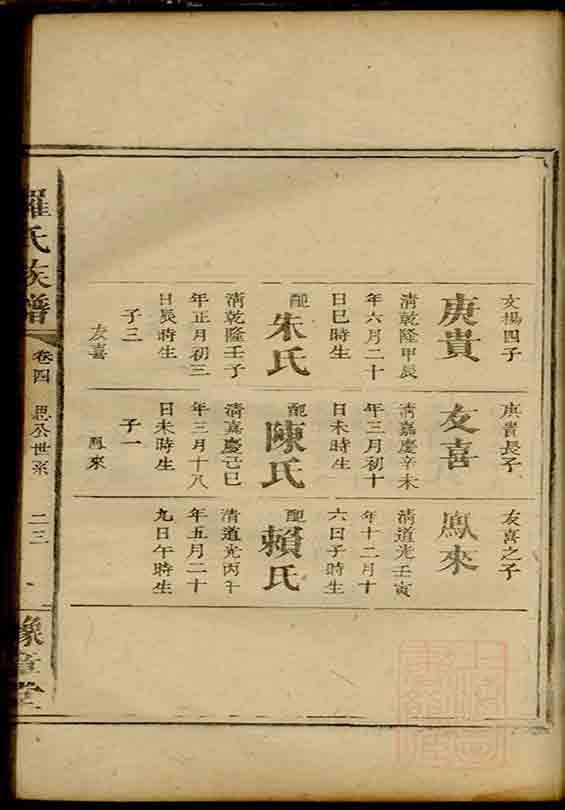 文揚四子
庚貴
清乾隆甲辰
年六月二十
日巳時生
配
朱氏
清乾隆壬子
年正月初三
日辰時生
子三
友喜
庚貴長子
友喜
清嘉慶辛未
年三月初十
日未時生
配
陳氏
清嘉慶己巳
年三月十八
日未時生
子一
鳳來
友喜之子
鳳來
清道光壬寅
年十二月十
六日子時生
配
賴氏
清道光丙午
年五月二十
九日午時生
羅氏族譜
卷四
思公世系
二三
豫章堂